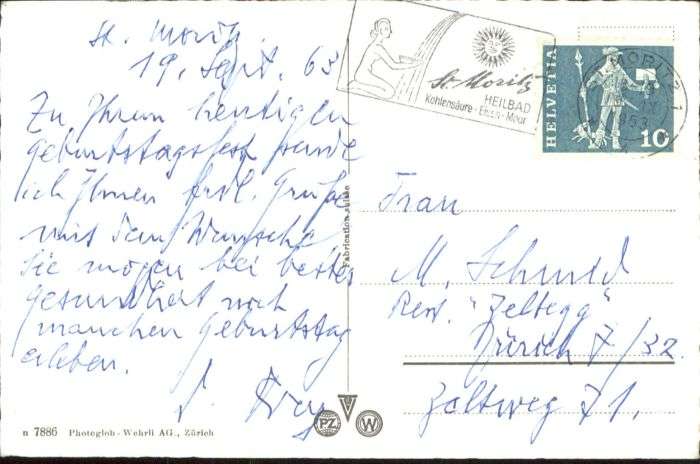 St. Moritz.
19. Sept. 63
Zu Ihrem heutigen
Geburtstagsfest sende
ich Ihnen frdl. Grüße
mit dem Wunsche
Sie mögen bei bester
Gesundheit noch
manchen Geburtstag
erleben.
St. Moritz
HEILBAD
Kohlensäure-Eisen-Moor
HELVETIA
10
MORITZ 1
Fabrication suisse
Frau
M. Schmid
"Zeltegg"
Zürich 7/32
Zeltweg 71.
n 7886 Photoglob-Wehrli AG., Zürich
PZ V W